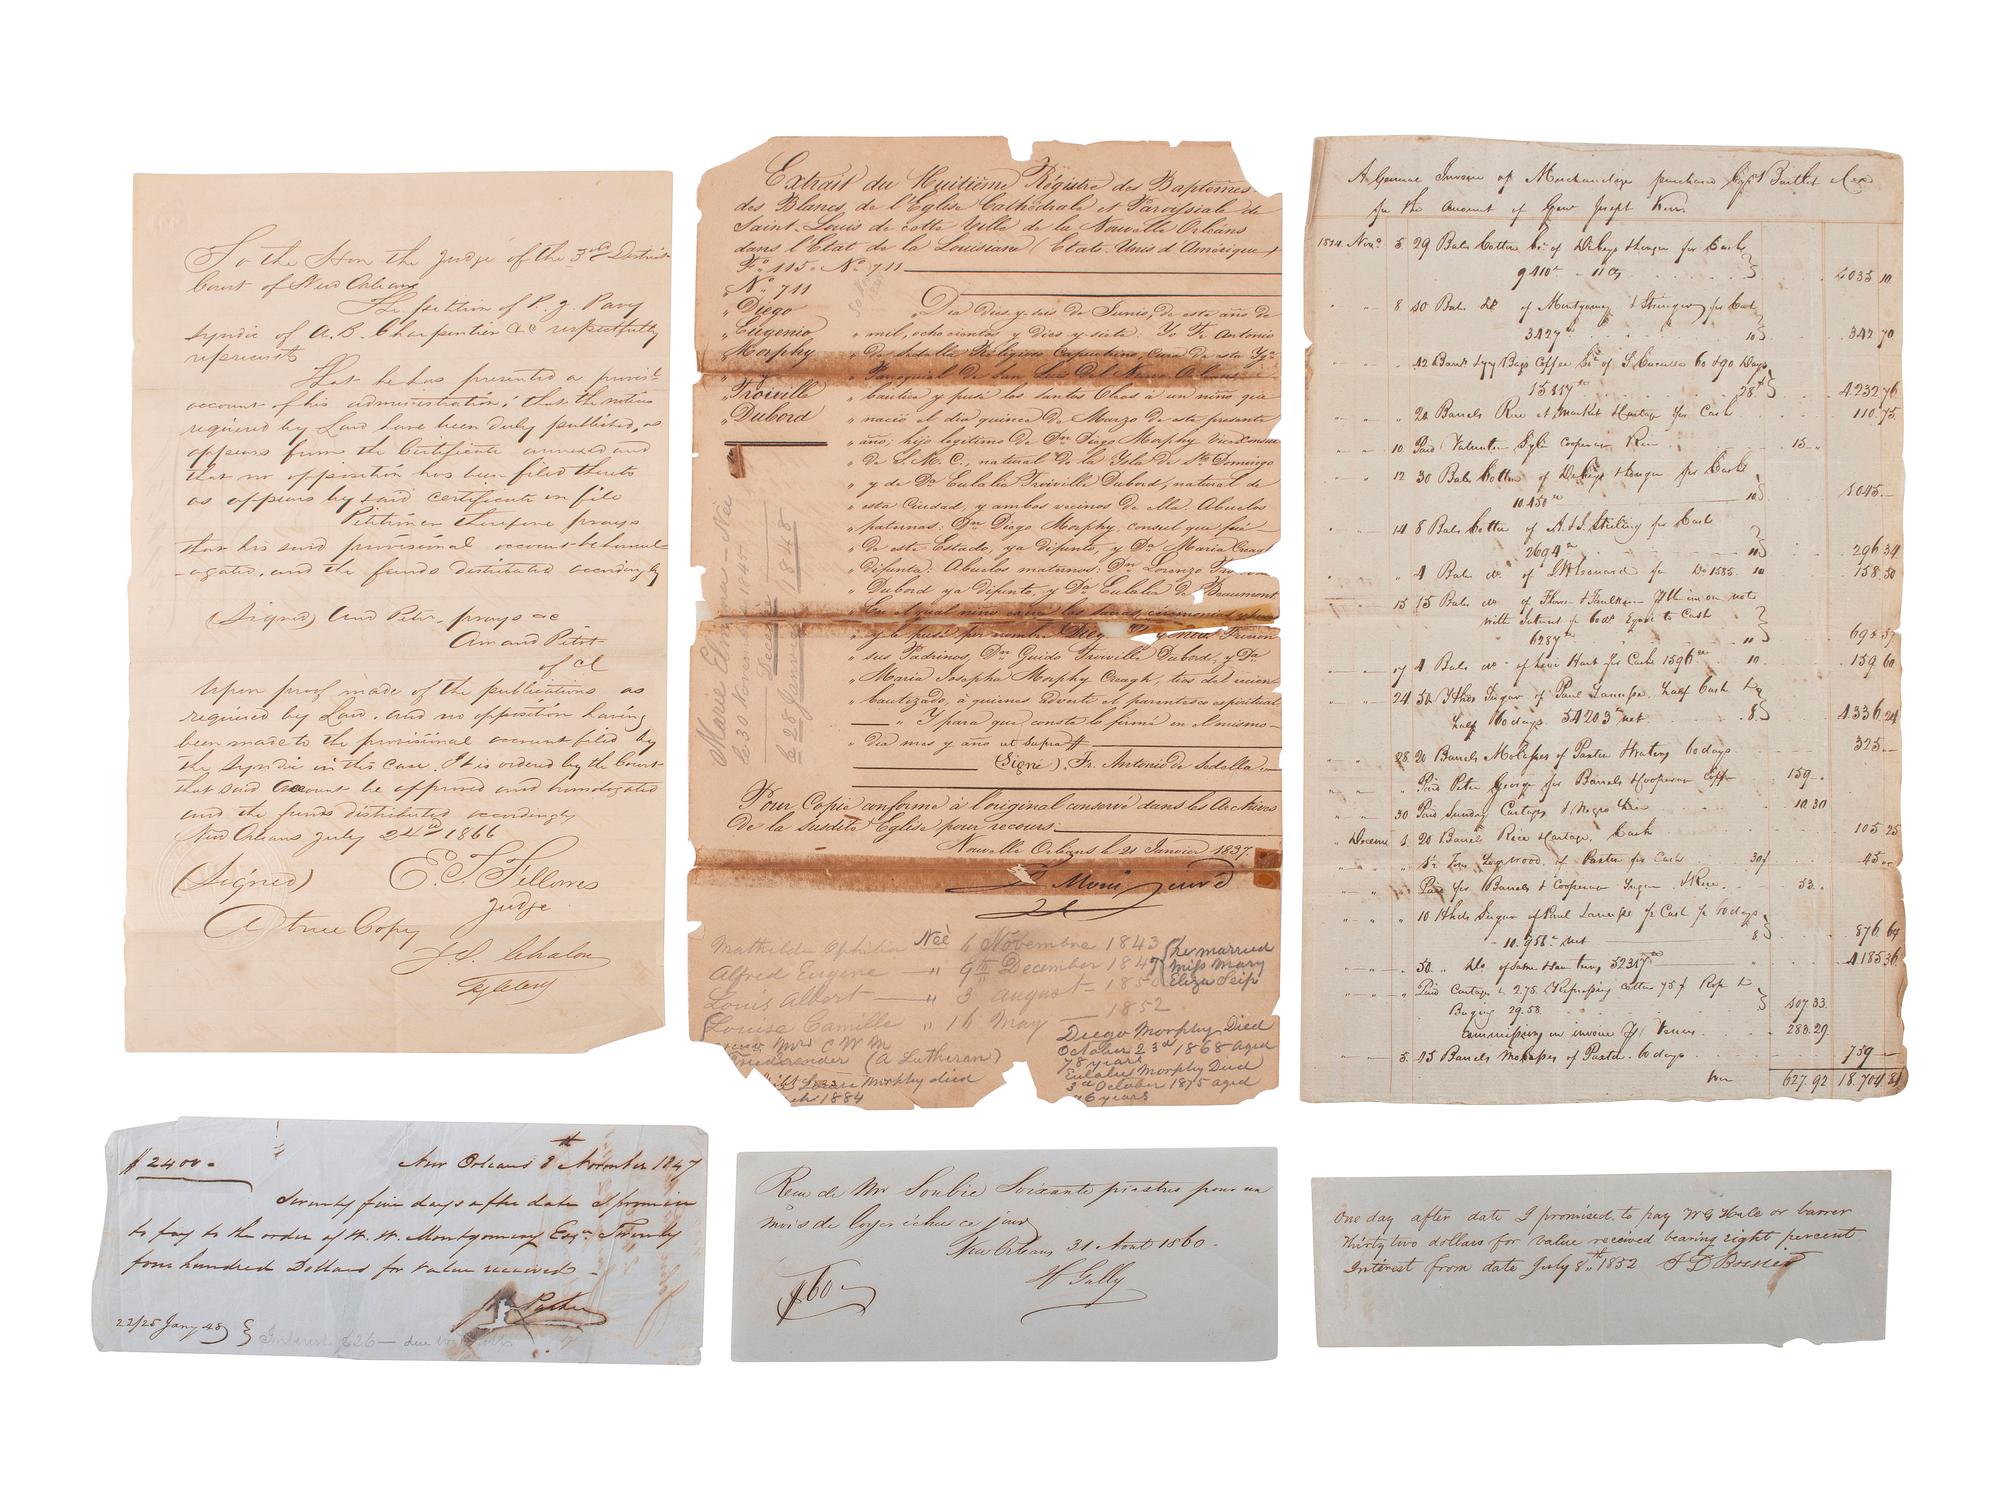 To the Hon the Judge of the 3rd District
Court of New Orleans
The petition of P. J. Pavy
Syndic of A. B. Charpentier &c respectfully
represents
That he has presented a provisl
account of his administration; that the notices
required by Law have been duly published, as
appears from the Certificate annexed and
that no opposition has been filed thereto
as appears by said certificate on file
Petitioner therefore prays
that his said provisional account be homol-
-ogated, and the funds distributed accordingly
(Signed) And Peter. prays &c
Amand Pitot
of cl
Upon proof made of the publications as
required by Law, and no opposition having
been made to the provisional account filed by
the Syndic in this case. It is ordered by the Court
that said account be approved and homologated
and the funds distributed accordingly
New Orleans July 24th 1866
(Signed) E. T. Fellowes
Judge
A true Copy
J. S. Chalon
Dy Clerk
Extrait du Huitième Régistre des Baptêmes
des Blancs, de l'Eglise Cathédrale et Paroissiale de
Saint. Louis de cette Ville de la Nouvelle Orléans
dans l'Etat de la Louisiane (Etats-Unis d'Amérique)
Fo. 115. No. 711
No. 711
Diego
Eugenio
Morphy
y
Troiville
Dubord
Dia dies y seis de Junio, de este año de
mil, ochocientos y dies y siete: Yo Fr. Antonio
de Sedella Religioso Capuchino, Cura de esta Yga
Parroquial de San Luis del Nueva Orleans
bautice y puse los Santos Oleos à un niño que
nació el dia quince de Marzo de este presente
año; hijo legitimo de Dn. Diego Morphy Viceconsul
de S. M. C., natural de la Ysla de Sto Domingo
y de Da. Eulalia Troiville Dubord, natural de
esta Ciudad, y ambos vecinos de ella. Abuelos
paternos: Dn. Diego Morphy, consul que fué
de este Estado, ya difunto, y Da. Maria Creagh
difunta: Abuelos maternos: Dn. Lorenzo
Dubord ya difunto, y Da. Eulalia de Beaumont
En el qual niño exerci las sacras ceremonias y preces
y le puse por nombre Diego y fueron
sus Padrinos, Dn. Guido Troiville Dubord, y Da.
Maria Josepha Morphy Creagh, tios del recien
bautizado, à quienes advertí el parentesco espiritual
Y para que conste lo firmé en el mismo
dia mes y año ut supra
(Signé). Fr. Antonio de Sedella
Pour Copie conforme à l'original conservé dans les Archives
de la susdite Eglise pour recours:
Nouvelle Orléans le 21 Janvier 1837.
L. Moni curé
Marie Elmina - Neé
le 30 Novembre 1845
Decedée
le 28 Janvier 1848
Mathilde Ophilia Neè 6 Novembre 1843
Alfred Eugene " 9th December 1847 (he married
Miss Mary
Eliza Seip
Louis Albert " 3 August 1850
Louise Camille " 16 May 1852
now Mrs C W M
Friedrender (a Lutheran)
Morphy died
1884
Diego Morphy Died
October 23d 1868 aged
78 years
Eulalie Morphy Died
3d October 1875 aged
76 years
A General Invoice of Merchandize purchased by Bartlet & Cox
for the Amount of Genr Joseph Kerr.
1814 Nov. 5 29 Bales Cotton bt of Debuys & Longer for Cash
9410 - 11 1035 10
8 10 Bales do of Montgomery & Stringer for Cash
3427 10 342 70
42 Bags Coffee bt of 60 & 90 Days
28 4232 76
20 Barrels Rice at market & Cartage for Cash 110.75
10 Paid Valentin Cooperer Rice 15
12 30 Bales Cotton of Debuys & Longer for Cash
10.450 10 1045.
14 8 Bales Cotton of A & J. Stirling for Cash
2694 11 296 34
4 Bales do. of Leonard for Do 1585. 10 158.50
15 15 Bales do of Flower & Faulkner
with Interest for 60 ds Equal to Cash
6287 11 691 57
17 4 Bales do of Levi Hart for Cash 1596 10. 159 60
24. 54 Hhds Sugar of Paul Lanusse half Cash
half 60 days. 54203 net 8 4336.24
28. 20 Barrels Molasses of Porter 60 days 325
Paid Peter George for Barrels & Cooperer Coffee 159
30 Paid Sunday Cartages & Negro hire 10.30
Decemr 1. 20 Barrels Rice & Cartage. Cash 105 25
Tons Logwood of Porter for Cash 30 45
Paid for Barrels & Cooperer Sugar & Rice 53.
10 Hhds Sugar of Paul Lanusse for Cash 60 days
10.958 net 8 876 64
50 Do. of same 4185 36
Paid Cartage 2.75 Repressing Cotton 75 Rope &
Baging 29.58. 107.33.
Commission on invoice 283.29.
5. 45 Barrels Molasses of Porter. 60 days 759
627.92 18.704 81
$ 2400. New Orleans 8th November 1847
Seventy five days after date I promise
to pay to the order of W. W. Montgomery Esqr. Twenty
four hundred Dollars for value received
22/25 Jany 48
Interest $26 — due
Recu de Mr Soubie Soixante piastres pour un
mois de loyer échu ce jour
New Orleans 31 Aout 1860.
$60
H Gally
One day after date I promised to pay W G Hale or barrer
thirty two dollars for value received bearing eight percent
Interest from date July 8th 1852 J D Bossier